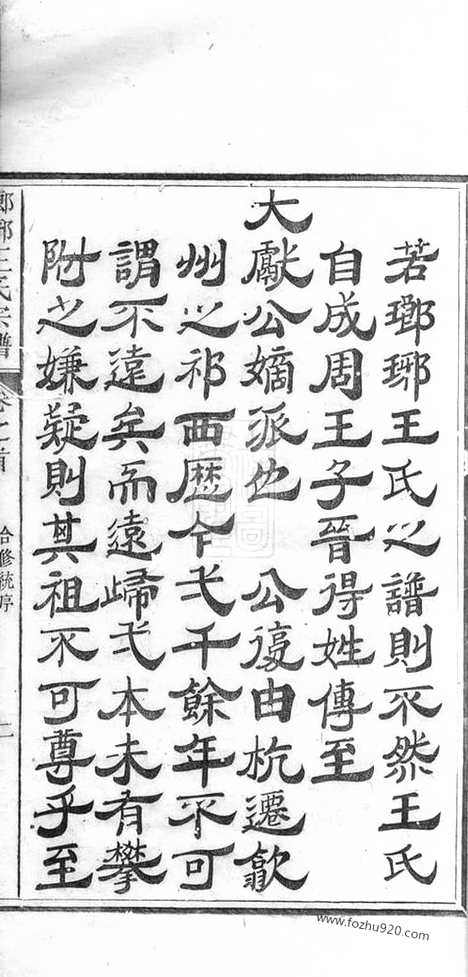 若瑯琊王氏之譜則不然王氏
自成周王子晉得姓傳至
大獻公嫡派也　公復由杭遷歙
州之祁西歷今弌千餘年不可
謂不遠矣而遠歸弌本未有攀
附之嫌疑則其祖不可尊乎至
瑯琊王氏宗譜
卷之首
合修統序
二
www.fozhu920.com